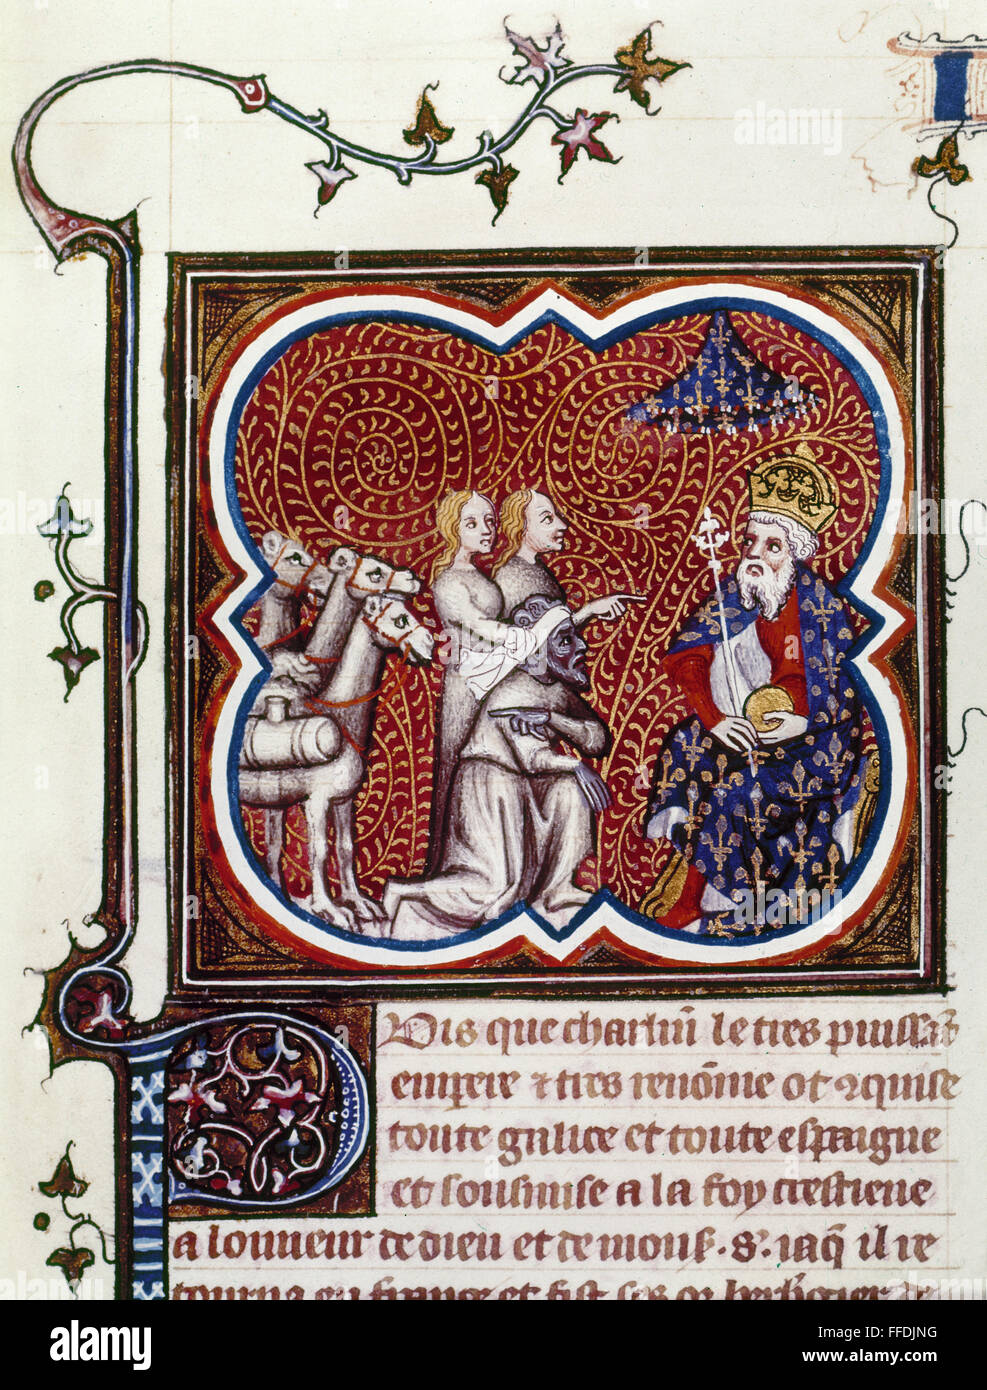 Puis que charlm̄ le tres puissāt
emperere & tres renōme ot aquise
toute galice et toute espaigne
et sousmise a la foy crestiene
a lonneur de dieu et de mons. s. iaq̄ il re
tourna en france et fist ses
alamy stock photo
alamy
a
a
a
a
FFDJNG
www.alamy.com